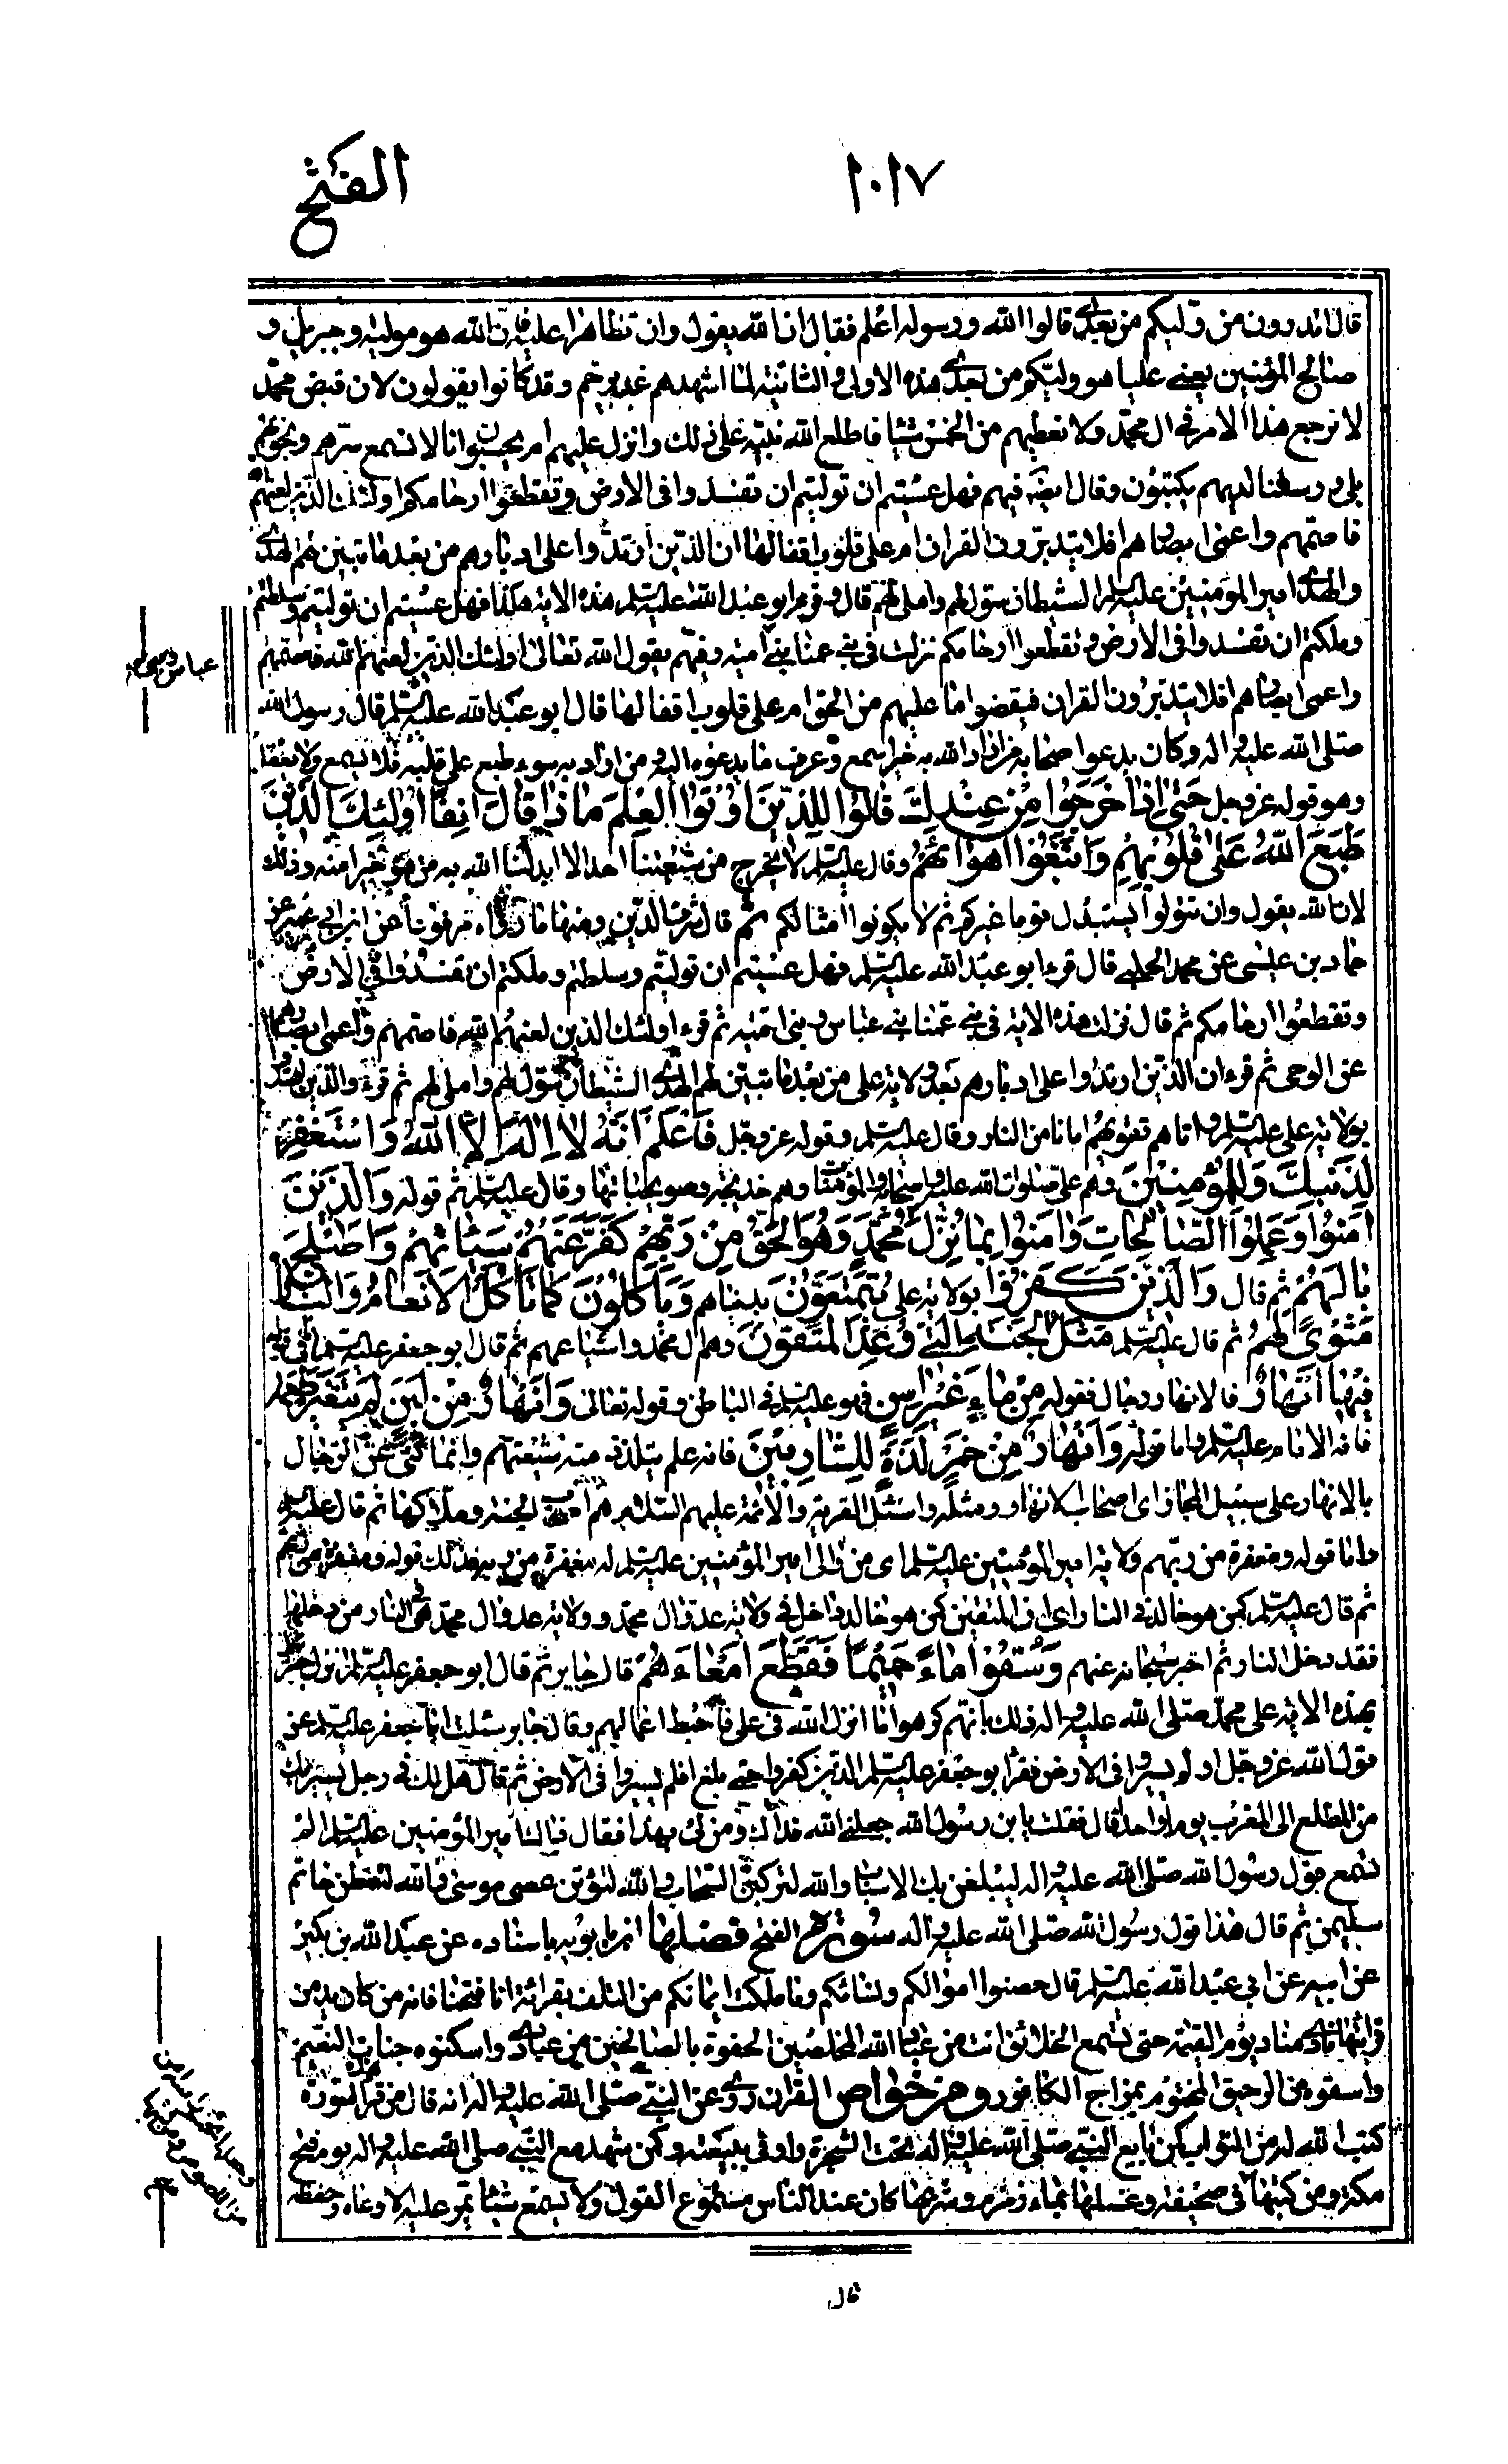 ١٠١٧
الفتح
قال اتدرون من وليكم من بعدى قالوا الله ورسوله اعلم فقال ان الله يقول وان تظاهرا عليه فان الله هو موليه وجبريل و
صالح المؤمنين يعنى عليا هو وليكم من بعدى هذه الاولى والثانية لما اشهدهم غدير خم وقد كانوا يقولون لان قبض محمد
لا نرجع هذا الامر فى ال محمد ولا نعطيهم من الخمس شيئا فاطلع الله نبيه على ذلك وانزل عليهم ام يحسبون انا لا نسمع سرهم ونجويهم
بلى ورسلنا لديهم يكتبون وقال ايضا فيهم فهل عسيتم ان توليتم ان تفسدوا فى الارض وتقطعوا ارحامكم اولئك الذين لعنهم الله
فاصمهم واعمى ابصارهم افلا يتدبرون القران ام على قلوب اقفالها ان الذين ارتدوا على ادبارهم من بعد ما تبين لهم الهدى
والهدى امير المؤمنين عليه السلم الشيطان سول لهم واملى لهم قال وقرء ابو عبد الله عليه السلم هذه الاية هكذا فهل عسيتم ان توليتم وسلطتم
وملكتم ان تفسدوا فى الارض وتقطعوا ارحامكم نزلت فى بنى عمنا بنى امية وفيهم يقول الله تعالى اولئك الذين لعنهم الله فاصمهم
واعمى ابصارهم افلا يتدبرون القران فيقضوا ما عليهم من الحق ام على قلوب اقفالها قال ابو عبد الله عليه السلم قال رسول الله
صلى الله عليه واله وكان يدعو اصحابه من اراد الله به خيرا سمع وعرف ما يدعوه اليه ومن اراد به سوء طبع على قلبه فلا يسمع ولا يعقل
وهو قوله عز وجل حتى اذا خرجوا من عندك قالوا للذين اوتوا العلم ماذا قال انفا اولئك الذين
طبع الله على قلوبهم واتبعوا اهوائهم وقال عليه السلم لا يخرج من شيعتنا احد الا ابدلنا الله به من هو خير منه وذلك
لان الله يقول وان تتولوا يستبدل قوما غيركم ثم لا يكونوا امثالكم ثم قال شرف الدين ومنها ما رواه مرفوعا عن ابن ابى عمير عن
حماد بن عيسى عن محمد الحلبى قال قرء ابو عبد الله عليه السلم فهل عسيتم ان توليتم وسلطتم وملكتم ان تفسدوا فى الارض
وتقطعوا ارحامكم ثم قال نزلت هذه الاية فى بنى عمنا بنى عباس وبنى امية ثم قرء اولئك الذين لعنهم الله فاصمهم واعمى ابصارهم
عن الوحى ثم قرء ان الذين ارتدوا على ادبارهم بعد ولاية على من بعد ما تبين لهم الهدى الشيطان سول لهم واملى لهم ثم قرء والذين اهتدوا
بولاية على عليه السلم واتاهم تقويهم امانا من النار وقال عليه السلم وقوله عز وجل فاعلم انه لا اله الا الله واستغفر
لذنبك وللمؤمنين وهم على صلوات الله عليه واصحابه والمؤمنات وهم خديجة وصويحباتها وقال عليه السلم ثم قوله والذين
امنوا وعملوا الصالحات وامنوا بما نزل على محمد وهو الحق من ربهم كفر عنهم سيئاتهم واصلح
بالهم ثم قال والذين كفروا بولاية على يتمتعون بدنياهم ويأكلون كما تاكل الانعام والنار
مثوى لهم ثم قال عليه السلم مثل الجنة التى وعد المتقون وهم ال محمد واشياعهم ثم قال ابو جعفر عليه السلم اما قوله
فيها انهار فالانهار رجال فقوله من ماء غير اسن فهو عليه السلم فى الباطن وقوله تعالى وانهار من لبن لم يتغير طعمه
فانه الامام عليه السلم واما قوله وانهار من خمر لذة للشاربين فانه علم يتلذذ منه شيعتهم وانما كنى عن الرجال
بالانهار على سبيل المجاز اى اصحاب الانهار ومثله واسئل القرية والائمة عليهم السلام هم اصحاب الجنة وملاكها ثم قال عليه السلم
واما قوله ومغفرة من ربهم ولاية امير المؤمنين عليه السلم اى من والى امير المؤمنين عليه السلم له مغفرة من ربه فذلك قوله ومغفرة من ربهم
ثم قال عليه السلم كمن هو خالد فى النار اى ان المتقين كمن هو خالد داخل فى ولاية عدو ال محمد وولاية عدو ال محمد هى النار من دخلها
فقد دخل النار ثم اخبر سبحانه عنهم وسقوا ماء حميما فقطع امعاءهم قال جابر ثم قال ابو جعفر عليه السلم نزل جبرئيل
بهذه الاية على محمد صلى الله عليه واله ذلك بانهم كرهوا ما انزل الله فى على فاحبط اعمالهم وقال جابر سئلت ابا جعفر عليه السلم عن
قول الله عز وجل اولم يسيروا فى الارض فقرأ ابو جعفر عليه السلم الذين كفروا حتى بلغ افلم يسيروا فى الارض ثم قال هل لك فى رجل يسير بك
من المطلع الى المغرب يوما واحدا قال فقلت يا بن رسول الله جعلنى الله فداك ومن لى بهذا فقال ذاك امير المؤمنين عليه السلم الم
تسمع قول رسول الله صلى الله عليه واله ليبلغن بك الاسباب والله لتركبن السحاب والله لتؤتن عصى موسى والله لتعطن خاتم
سليمن ثم قال هذا قول رسول الله صلى الله عليه واله سورة الفتح فضلها ابن بابويه باسناده عن عبد الله بن بكير
عن ابيه عن ابى عبد الله عليه السلم قال حصنوا اموالكم ونسائكم وما ملكت ايمانكم من التلف بقرائة انا فتحنا فانه من كان يدمن
قرائتها نادى مناد يوم القيمة حتى تسمع الخلائق انت من عباد الله المخلصين الحقوه بالصالحين من عبادى واسكنوه جنات النعيم
واسقوه من الرحيق المختوم بمزاج الكافور ومن خواص القران روى عن النبى صلى الله عليه واله انه قال من قرأ هذه السورة
كتب الله له من الثواب كمن بايع النبى صلى الله عليه واله تحت الشجرة واوفى ببيعته وكمن شهد مع النبى صلى الله عليه واله يوم فتح
مكة ومن كتبها فى صحيفة وغسلها بماء زمزم وشربها كان عند الناس مسموع القول ولا يسمع شيئا يمر عليه الا وعاه وحفظه
قال